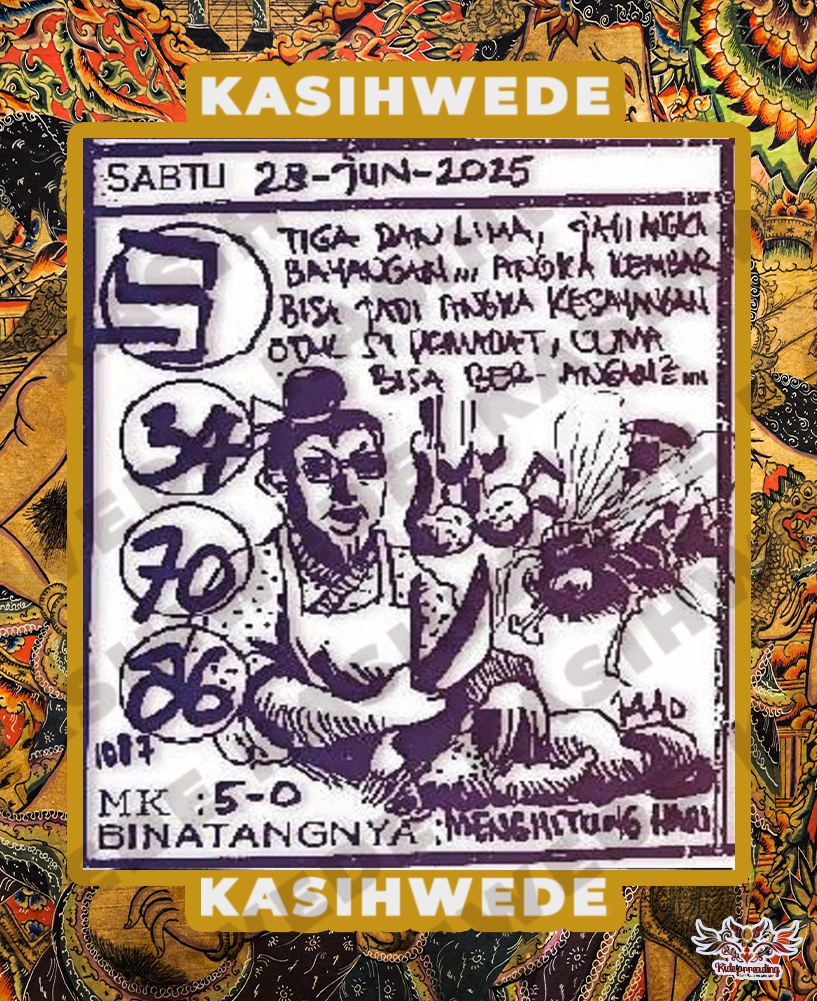 KASIHWEDE
SABTU 28-JUN-2025
TIGA DAN LIMA, JADI ANGKA
BAYANGAN,,, ANGKA KEMBAR
BISA JADI ANGKA KESAYANGAN
SI PEMADAT, CUMA
BISA BER-ANGAN2,,,
34
70
86
1087
MK : 5-0
BINATANGNYA : MENGHITUNG HARI
KASIHWEDE